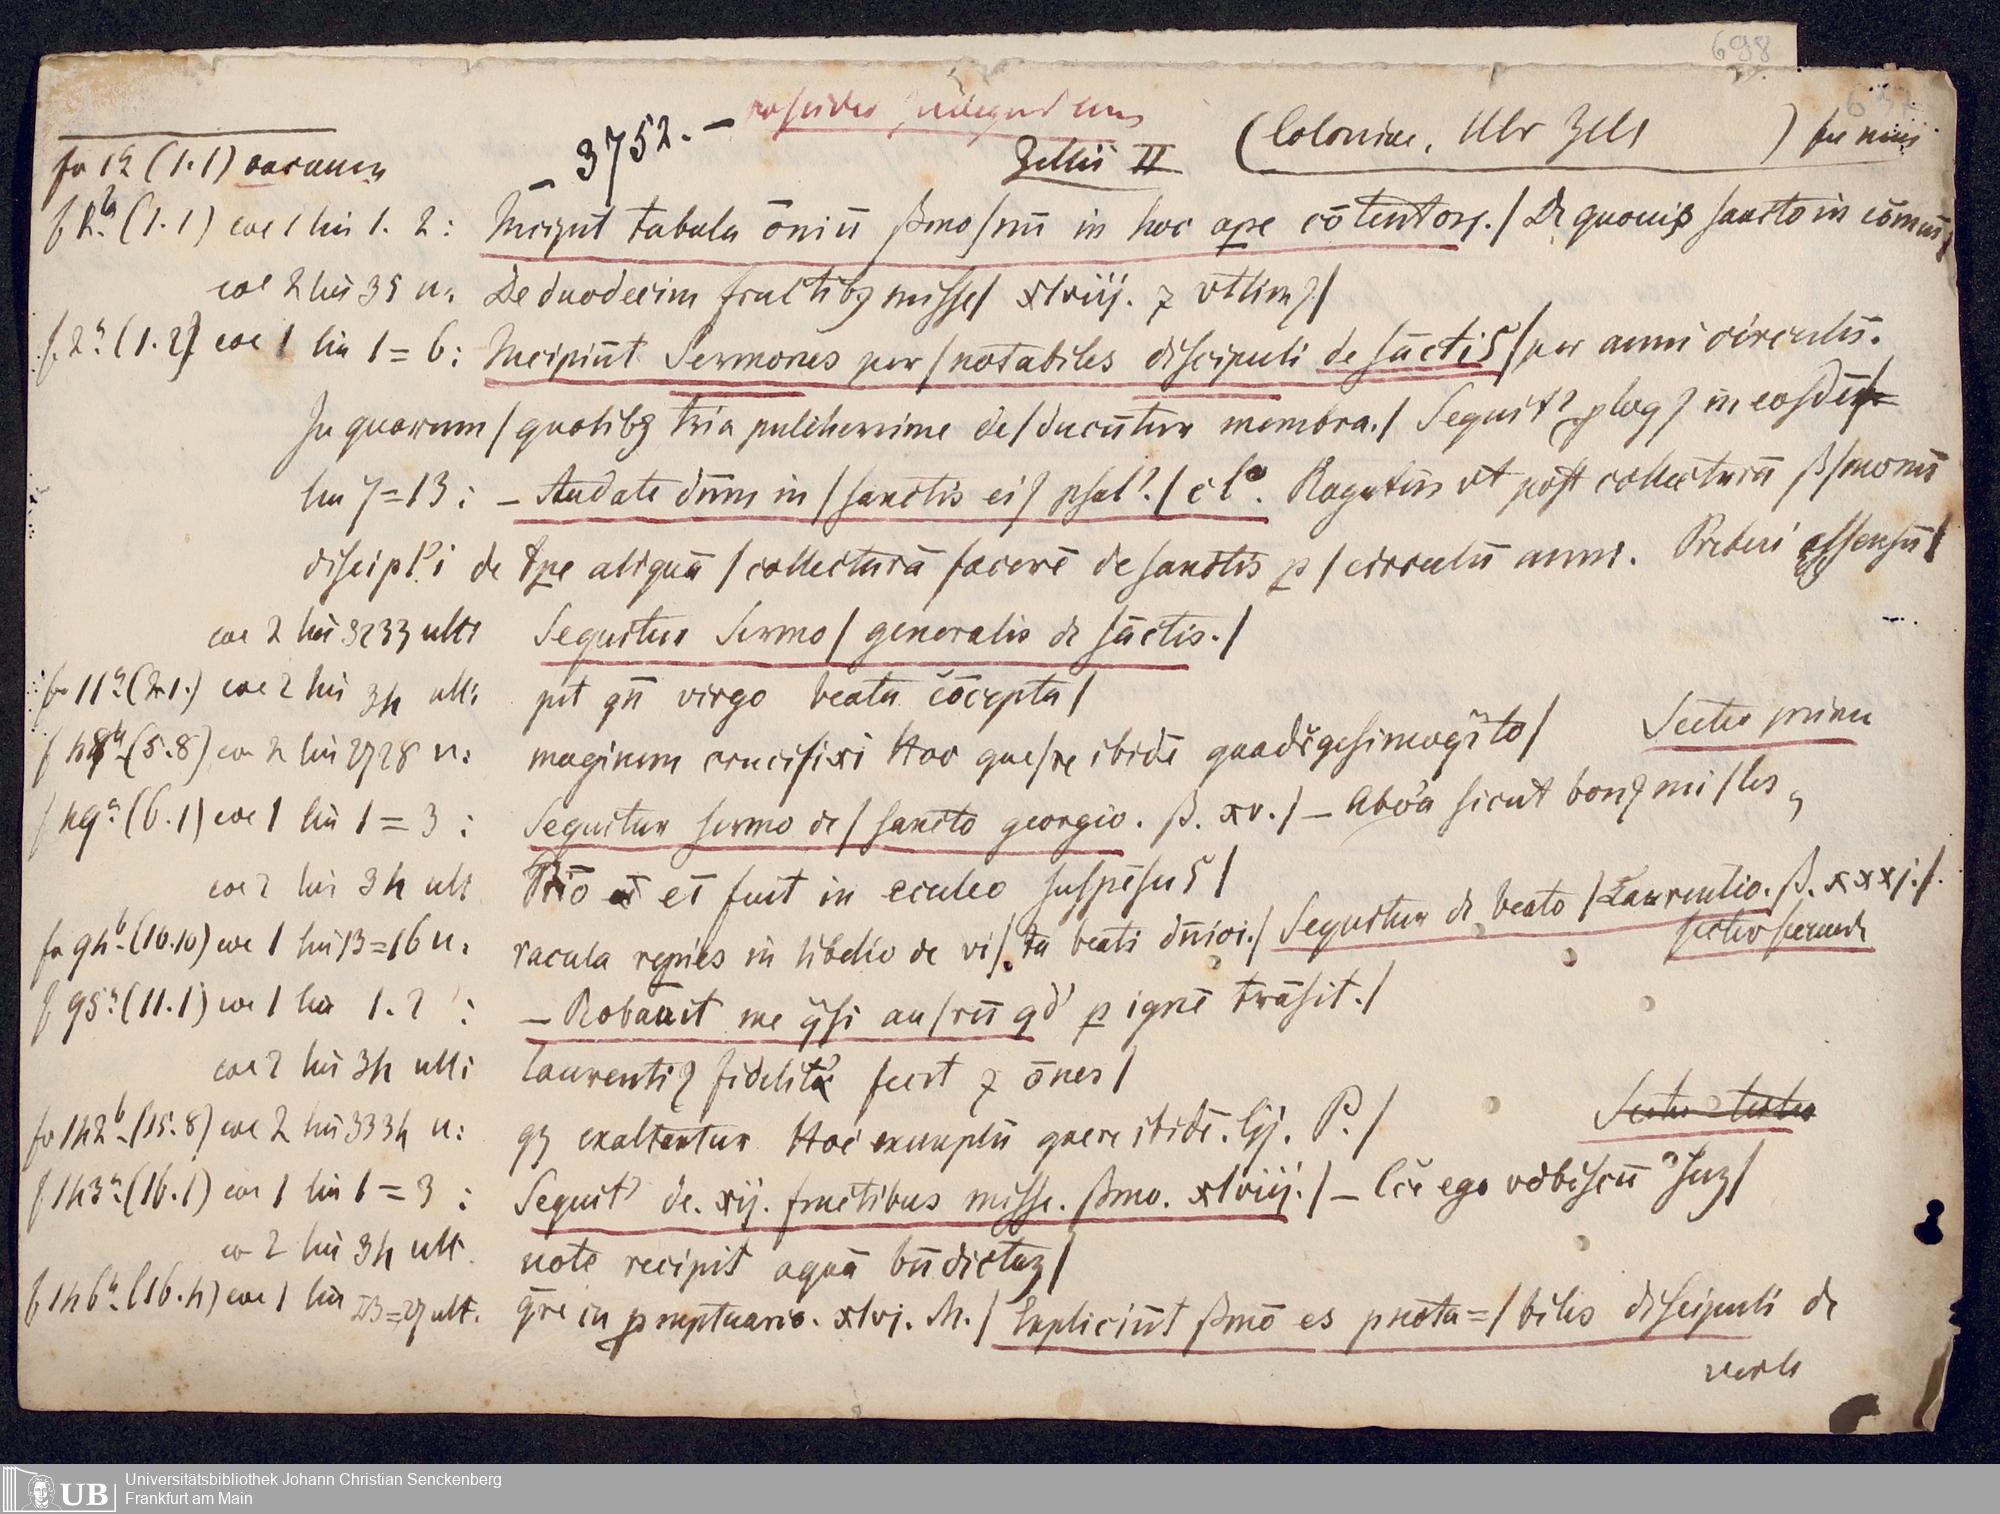 698
3752. –
Zellii II (Coloniae, Ulr Zell )
fo 1a (1.1) vacuum
f 1b (1.1) coe 1 lin 1. 2 : Incipiūt tabula ōniū ßmo/nū in hoc ope cōtentorʒ./ De quouis sancto in cōmuni/
coe 2 lin 35 u: De duodecim fructibʒ misse/ xlviij. ⁊ vltimꝰ/
f 2a (1.2) coe 1 lin 1 = 6 : Incipiūt Sermones per/notabiles discipuli de sāctis/per anni circulū.
In quorum/quolibʒ tria pulcherrime de/ducūtur membra./ Sequitʳ ꝓlogꝰ in eosdē/
lin 7 = 13 : – Audate dūm in/sanctis eiꝰ psal./cl°. Rogatus vt post collecturā ß/monū
discipli de tpe aliquā/collecturā facerē de sanctis p/circulū anni. Prebui assensū/
coe 2 lin 32 33 ult: Sequitur Sermo/generalis de sāctis./
fo 11a (2.1.) coe 2 lin 34 ult: pit qn̄ virgo beata cōcepta/
(5.8) coe 2 lin 27 28 u: maginem crucifixi Hoc que/re ibidē Sectio prima
f 49a (6.1) coe 1 lin 1 = 3 : Sequitur sermo de/sancto georgio. ß. xv./ – sicut bonꝰ mi/les
coe 2 lin 34 ult: fuit in eculeo suspēsus/
fo 94b (10.10) coe 1 lin 13 = 16 u: racula in libello de vi/ta beati dn̄ici./ Sequitur de beato/Laurentio. ß. xxxj./.
sectio secunda
f 95a (11.1) coe 1 lin 1. 2 : – Robauit me q̄si au/rū qd' p ignē trāsit./
coe 2 lin 34 ult: laurentiꝰ fidelitʳ fecit ⁊ ōnes/
fo 142b (15.8) coe 2 lin 33 34 u: qʒ exaltentur Hoc exemplū quere ibidē. lij. P./ Sectio tertia
f 143a (16.1) coe 1 lin 1 = 3 : Sequitʳ de. xij. fructibus misse. ßmo. xlviij./ – Cce ego vobiscū suʒ/
coe 2 lin 34 ult. note recipit aquā bn̄dictaʒ/
f 146a (16.4) coe 1 lin 23 = 27 ult. q̄re in ꝓmptuario. xlvj. M./ Expliciūt ßmōes pnota=/bilis discipuli de
verte
Universitätsbibliothek Johann Christian Senckenberg
Frankfurt am Main
UB